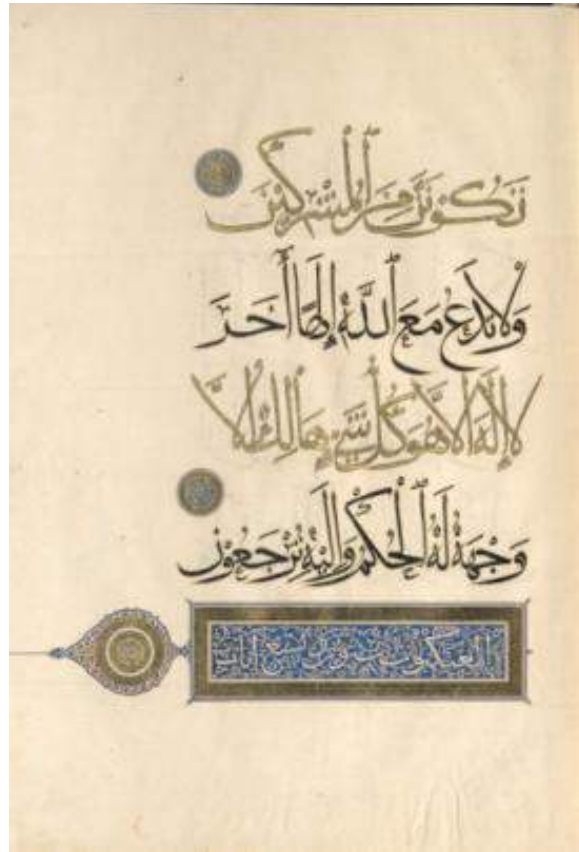 تَكُونَنَّ مِنَ الْمُشْرِكِينَ
وَلَا تَدْعُ مَعَ اللَّهِ إِلَٰهًا آخَرَ
لَا إِلَٰهَ إِلَّا هُوَ كُلُّ شَيْءٍ هَالِكٌ إِلَّا
وَجْهَهُ لَهُ الْحُكْمُ وَإِلَيْهِ تُرْجَعُونَ
العنكبوت ستون وتسع آيات